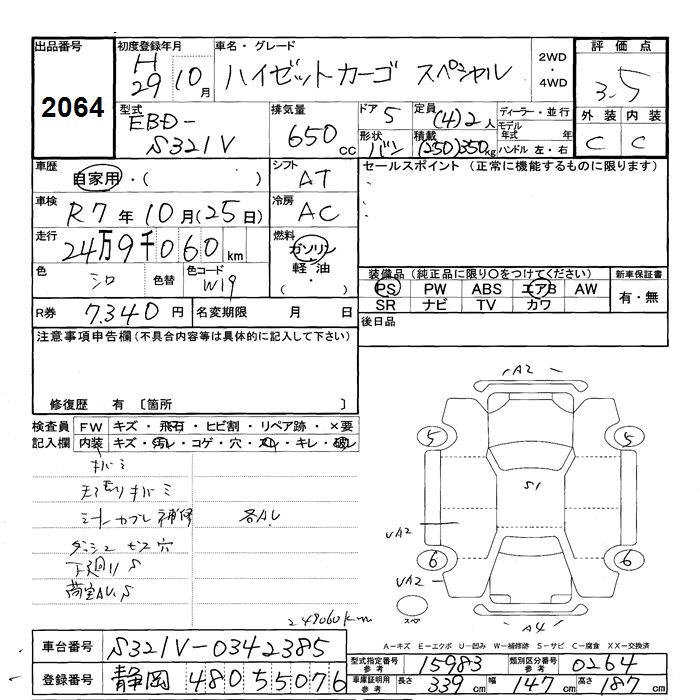 出品番号
2064
初度登録年月
H29 10月
車名・グレード
ハイゼットカーゴ スペシャル
2WD・4WD
評価点
3.5
外装 内装
C C
型式
EBD-S321V
排気量
650cc
ドア 5
形状 バン
定員 (4)2人
積載 (250)350kg
ディーラー・並行
モデル年式 年
ハンドル 左・右
車歴
自家用・( )
シフト
AT
車検
R7年10月(25日)
冷房
AC
走行
24万9千060km
燃料
ガソリン
軽油
( ・ )
色
シロ
色替
色コード
W19
R券 7.340円
名変期限 月 日
セールスポイント(正常に機能するものに限ります)
装備品(純正品に限り○をつけてください)
PS PW ABS エアB AW
SR ナビ TV カワ
新車保証書
有・無
後日品
注意事項申告欄(不具合内容等は具体的に記入して下さい)
修復歴 有 〔箇所 〕
検査員記入欄
FW キズ・飛石・ヒビ割・リペア跡・×要
内装 キズ・汚レ・コゲ・穴・スレ・キレ・破レ
補修 各AU
ダッシュ ビス穴
下廻りS
荷室AU、S
249060km
A2
5 5
S1
UA2
6 6
UA2
スペ
A4
A-キズ E-エクボ U-凹み W-補修跡 S-サビ C-腐食 XX-交換済
車台番号 S321V-0342385
登録番号 静岡 480 5 5076
型式指定番号 参考 15983
類別区分番号 参考 0264
車庫証明用 参考 長さ 339cm 幅 147cm 高さ 187cm